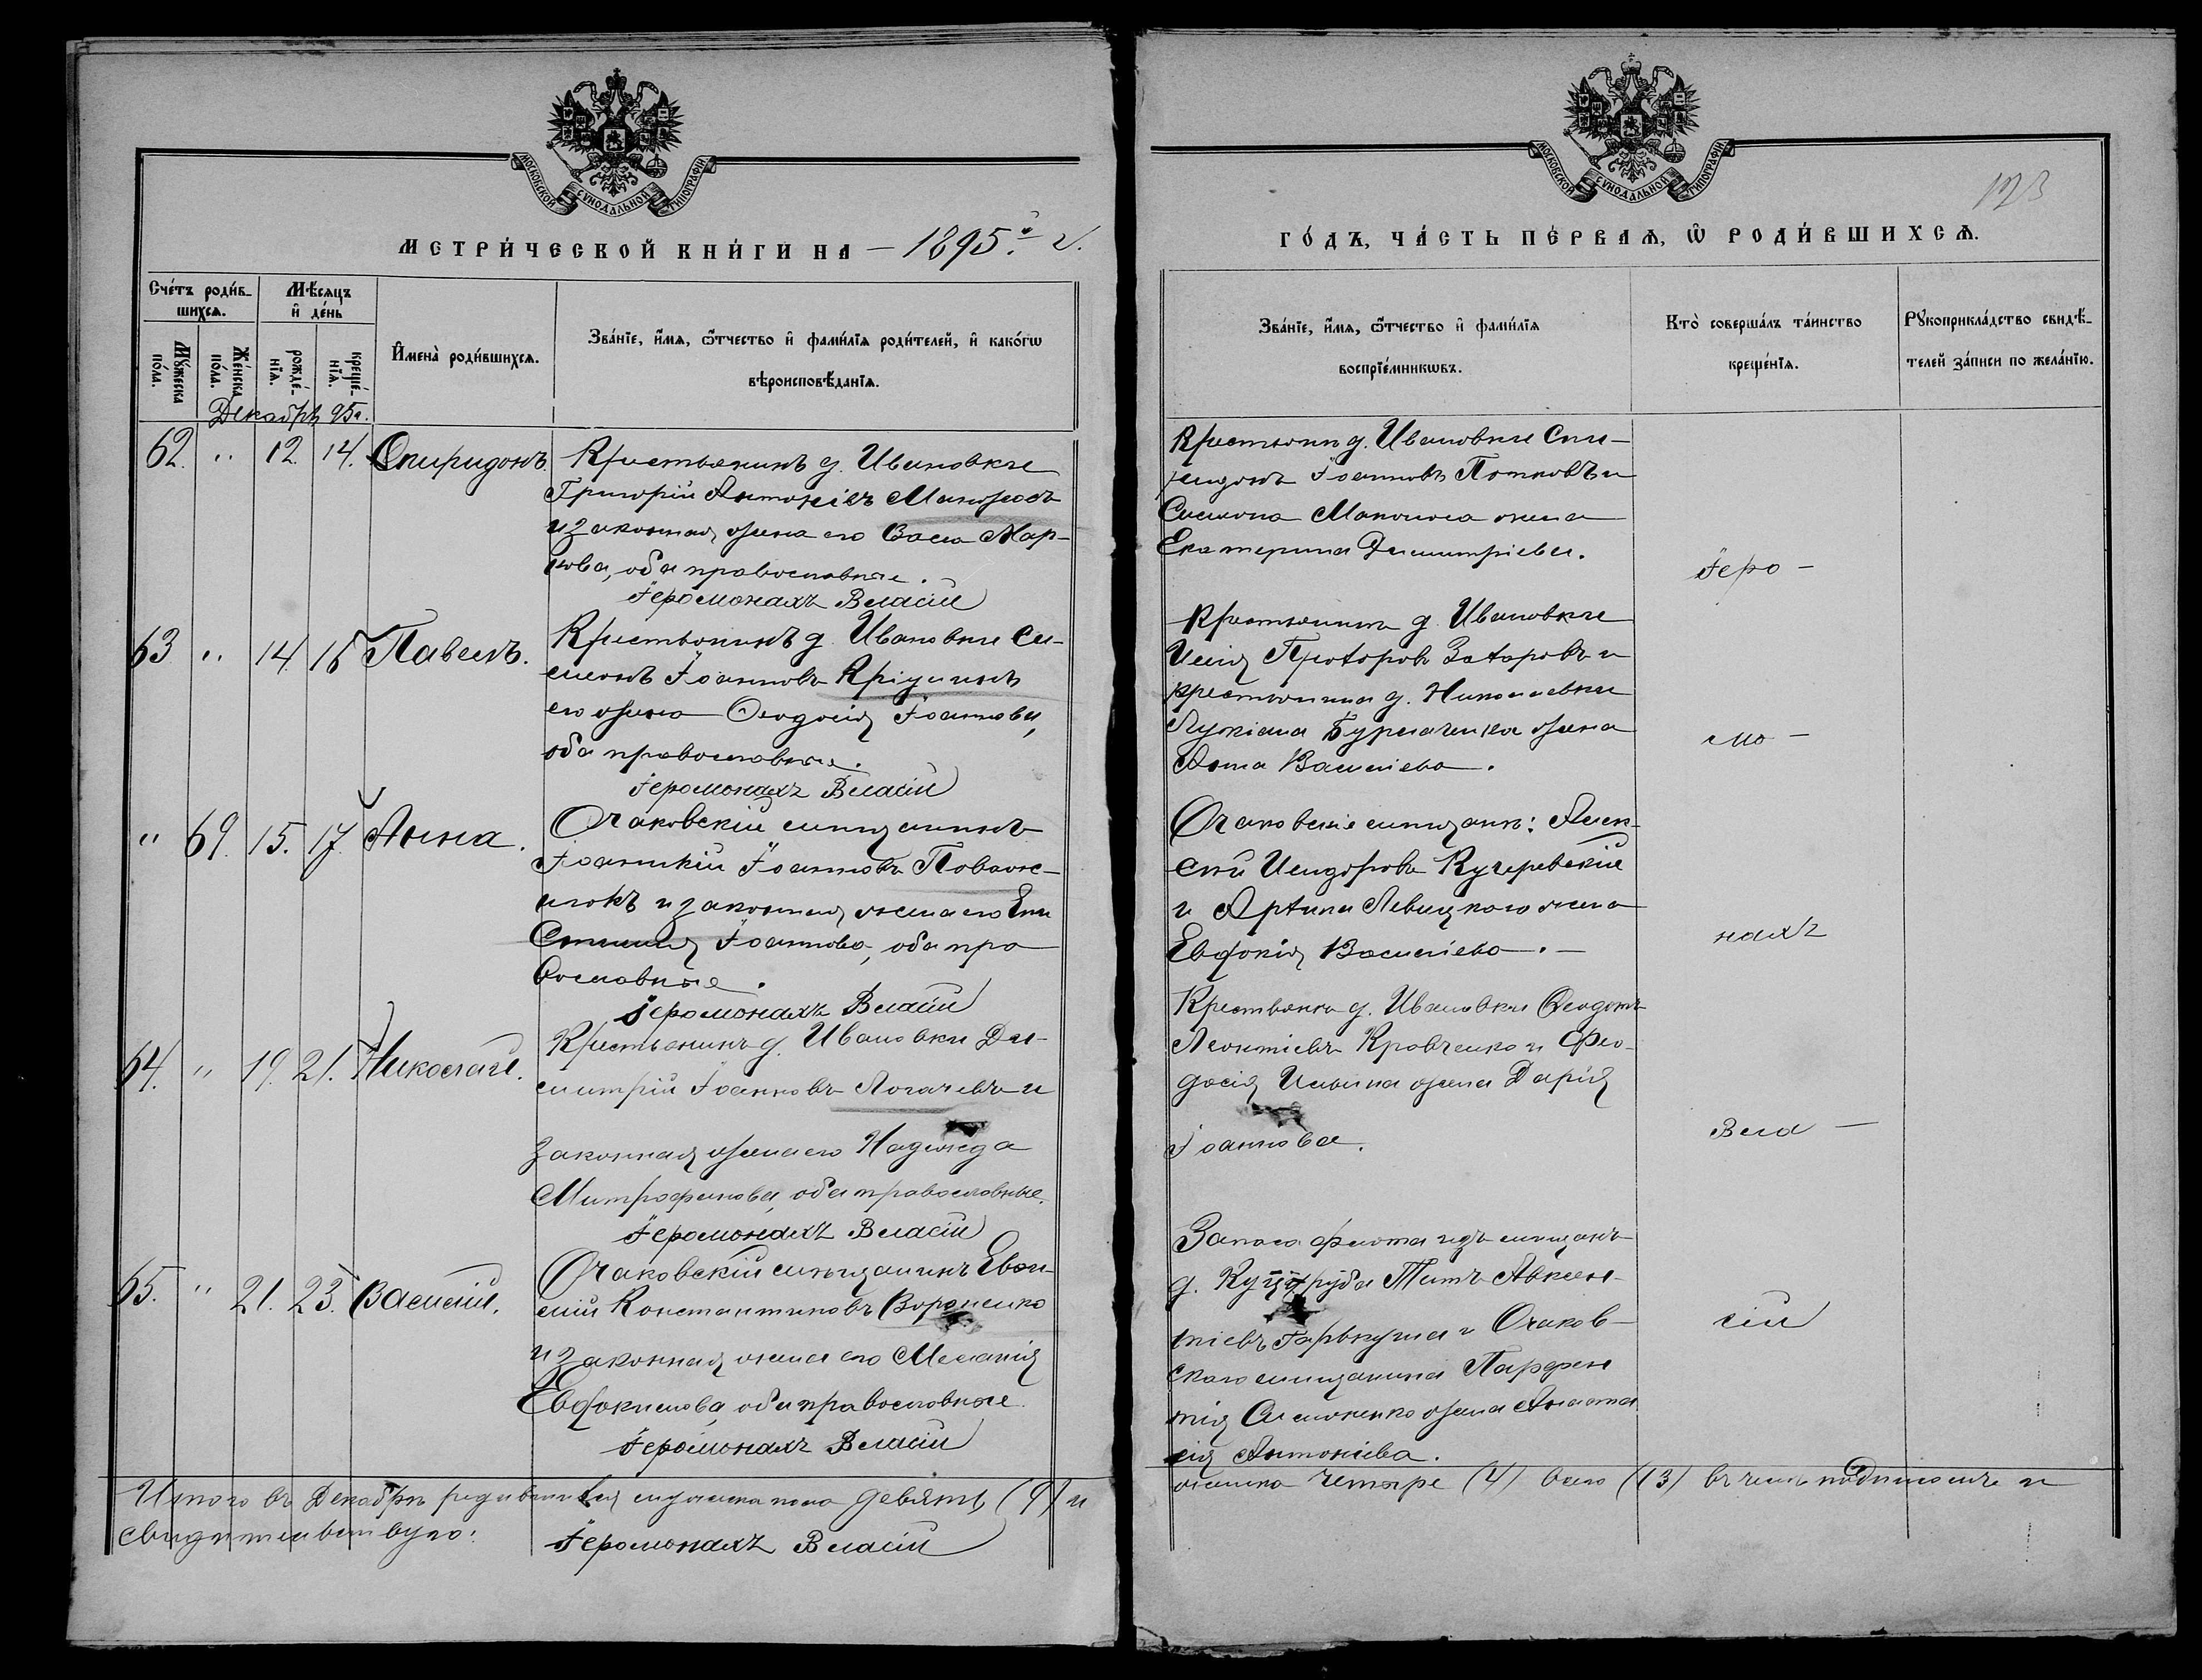 МОСКОВСКОЙ СѴНОДАЛЬНОЙ ТИПОГРАФІИ
МЕТРИ́ЧЕСКОЙ КНИ́ГИ НА – 1895.й г.
Сче́тъ роди́в-
шихсѧ.
Мѣ́сѧцъ
и҆ де́нь
Мꙋ́жеска
по́ла.
Же́нска
по́ла.
рожде́-
нїѧ.
креще́-
нїѧ.
И҆мена̀ роди́вшихсѧ.
Зва́нїе, и҆́мѧ, ѻ҆́тчество и҆ фами́лїѧ роди́телей, и҆ како́гѡ
вѣроисповѣ́данїѧ.
Декабрь 95г.
62. " 12. 14. Спиридонъ.
Крестьянинъ д. Ивановки
Григорій Антоніевъ
и законная жена его Мар-
кова, оба православные.
Іеромонахъ Власій
63 " 14. 15 Павелъ.
Крестьянинъ д. Ивановки Си-
меонъ Іоанновъ
его жена Ѳеодосія Іоаннова,
оба православные.
Іеромонахъ Власій
" 69. 15. 17. Анна.
Очаковскій мѣщанинъ
Іоанникій Іоанновъ
и законная жена его
Іоаннова, оба пра
вославные.
Іеромонахъ Власій
64. " 19. 21. Николай.
Крестьянинъ д. Ивановки Ди-
митрій Іоанновъ Логачевъ и
законная жена его Надежда
Митрофанова, оба православные.
Іеромонахъ Власій
65. " 21. 23. Василій.
Очаковскій мѣщанинъ Евѳи-
мій Константиновъ Вороненко
и законная жена его Меланія
Евдокимова, оба православные
Іеромонахъ Власій
Итого въ Декабрѣ родившихся мужеска пола девять (9) и
свидѣтельствую:
Іеромонахъ Власій
МОСКОВСКОЙ СѴНОДАЛЬНОЙ ТИПОГРАФІИ
123
ГО́ДЪ, ЧА́СТЬ ПЕ́РВАѦ, Ѡ҆ РОДИ́ВШИХСѦ.
Зва́нїе, и҆́мѧ, ѻ҆́тчество и҆ фами́лїѧ
воспрїе́мникѡвъ.
Кто̀ соверша́лъ та́инство
креще́нїѧ.
Рꙋкоприкла́дство свидѣ́-
телей за́писи по жела́нїю.
Крестьянинъ д. Ивановки Спи-
ридонъ Іоанновъ и
жена
Екатерина Димитріева.
Крестьянинъ д. Ивановки
Захаровъ и
крестьянина д. Николаевки
жена
Анна Васильева.
Очаковскіе мѣщане: Алек-
сѣй Исидоровъ Кучеревскій
и Левицкаго жена
Евдокія Васильева. –
Крестьяне д. Ивановки Ѳеодотъ
Леонтіевъ Кравченко и Ѳео-
досія Ильина жена Дарія
Іоаннова.
Запаса флота изъ мѣщанъ
д. Куцуруба Титъ Авксен-
тіевъ Гарькуша и Очаков-
скаго мѣщанина Парфен
тія Симоненко жена Анаста
сія Антоніева.
Іеро –
мо –
нахъ
Вла –
сій
женска четыре (4) всего (13) въ чемъ подписомъ и